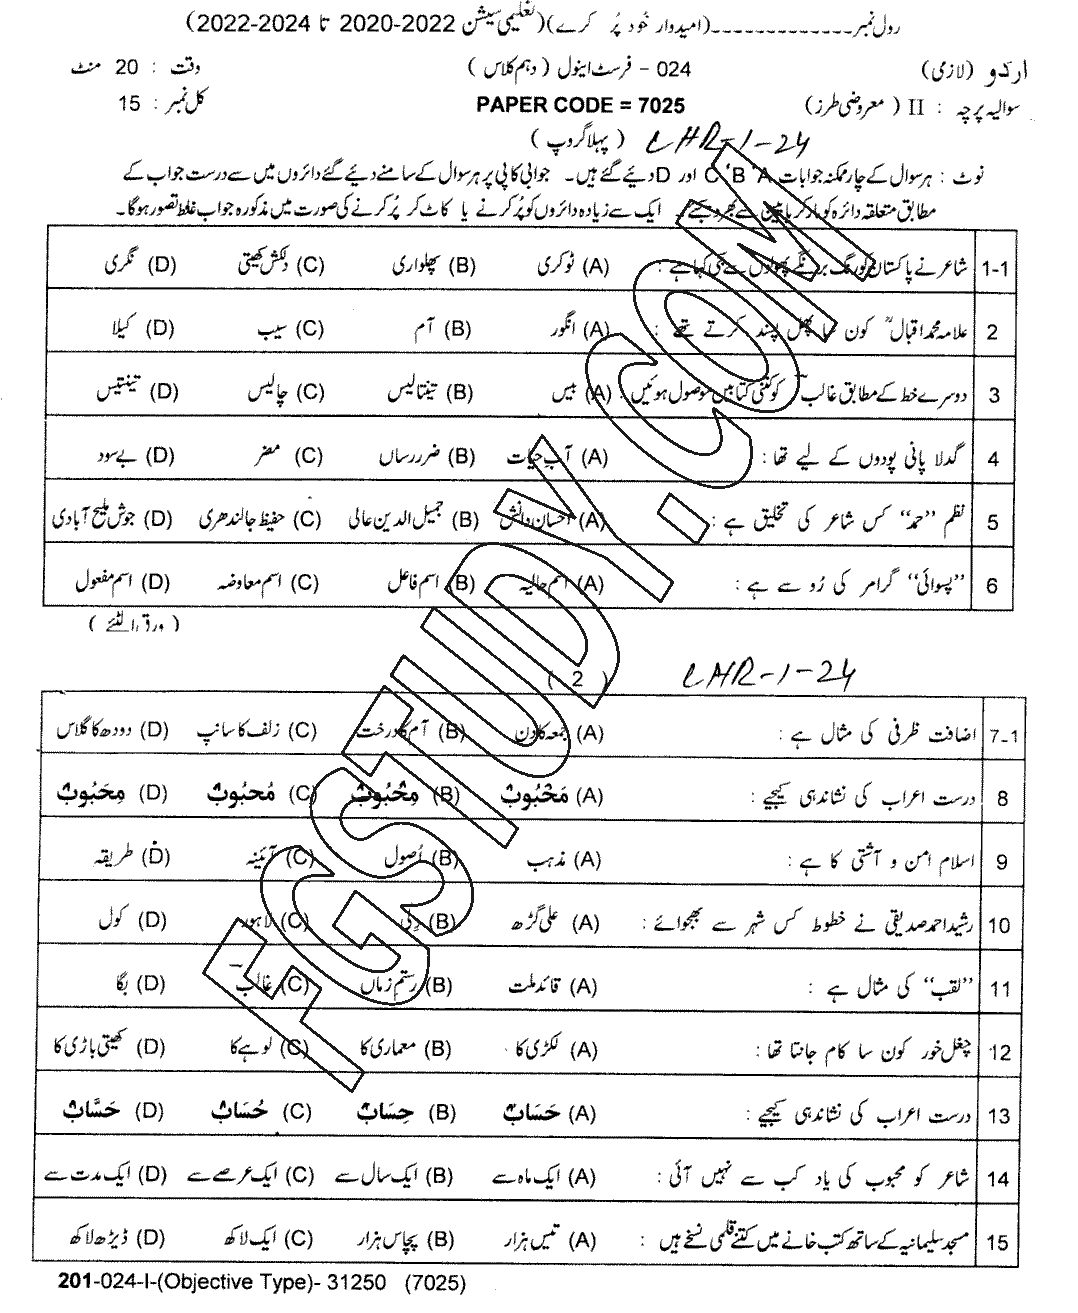 رول نمبر ـ ـ ـ ـ ـ ـ ـ ـ ـ ـ ـ ـ ـ (امیدوار خُود پُر کرے) (تعلیمی سیشن 2022-2020 تا 2024-2022)
اردو (لازمی) 024 - فرسٹ اینول (دہم کلاس) وقت : 20 منٹ
سوالیہ پرچہ : II (معروضی طرز) PAPER CODE = 7025 کل نمبر : 15
(پہلا گروپ) LHR-1-24
نوٹ : ہر سوال کے چار ممکنہ جوابات A ' B ' C اور D دیے گئے ہیں۔ جوابی کاپی پر ہر سوال کے سامنے دیے گئے دائروں میں سے درست جواب کے
مطابق متعلقہ دائرہ کو مارکر یا پین سے بھر دیجیے۔ ایک سے زیادہ دائروں کو پُر کرنے یا کاٹ کر پُر کرنے کی صورت میں مذکورہ جواب غلط تصور ہوگا۔
1-1 شاعر نے پاکستان کو رنگ برنگے پھولوں سے بھی کہا ہے : (A) ٹوکری (B) پھلواری (C) دلکش کھیتی (D) نگری
2 علامہ محمد اقبالؒ کون سا پھل پسند کرتے تھے : (A) انگور (B) آم (C) سیب (D) کیلا
3 دوسرے خط کے مطابق غالب کو کتنی کتابیں موصول ہوئیں : (A) بیس (B) تینتالیس (C) چالیس (D) تینتیس
4 گدلا پانی پودوں کے لیے تھا : (A) آبِ حیات (B) ضرر رساں (C) مضر (D) بے سود
5 نظم ”حمد“ کس شاعر کی تخلیق ہے : (A) احسان دانش (B) جمیل الدین عالی (C) حفیظ جالندھری (D) جوش ملیح آبادی
6 ”پسوائی“ گرامر کی رُو سے ہے : (A) اسم حالیہ (B) اسم فاعل (C) اسم معاوضہ (D) اسم مفعول
(ورق الٹئے)
( 2 ) LHR-1-24
7-1 اضافت ظرفی کی مثال ہے : (A) جمعہ کا دن (B) آم کا درخت (C) زلف کا سانپ (D) دودھ کا گلاس
8 درست اعراب کی نشاندہی کیجیے : (A) مَحْبُوبْ (B) مِحْبُوبْ (C) مُحبُوبْ (D) مِحَبُوبْ
9 اسلام امن و آشتی کا ہے : (A) مذہب (B) اُصول (C) آئینہ (D) طریقہ
10 رشید احمد صدیقی نے خطوط کس شہر سے بھجوائے : (A) علی گڑھ (B) دِلّی (C) لاہور (D) کول
11 ”لقب“ کی مثال ہے : (A) قائد ملت (B) رستمِ زماں (C) غالب (D) بگا
12 چغل خور کون سا کام جانتا تھا : (A) لکڑی کا (B) معماری کا (C) لوہے کا (D) کھیتی باڑی کا
13 درست اعراب کی نشاندہی کیجیے : (A) حَسَابْ (B) حِسَابْ (C) حُسَابْ (D) حَسَّابْ
14 شاعر کو محبوب کی یاد کب سے نہیں آئی : (A) ایک ماہ سے (B) ایک سال سے (C) ایک عرصے سے (D) ایک مدت سے
15 مسجد سلیمانیہ کے ساتھ کتب خانے میں کتنے قلمی نسخے ہیں : (A) تیس ہزار (B) پچاس ہزار (C) ایک لاکھ (D) ڈیڑھ لاکھ
201-024-I-(Objective Type)- 31250 (7025)
FGSTUDY.COM